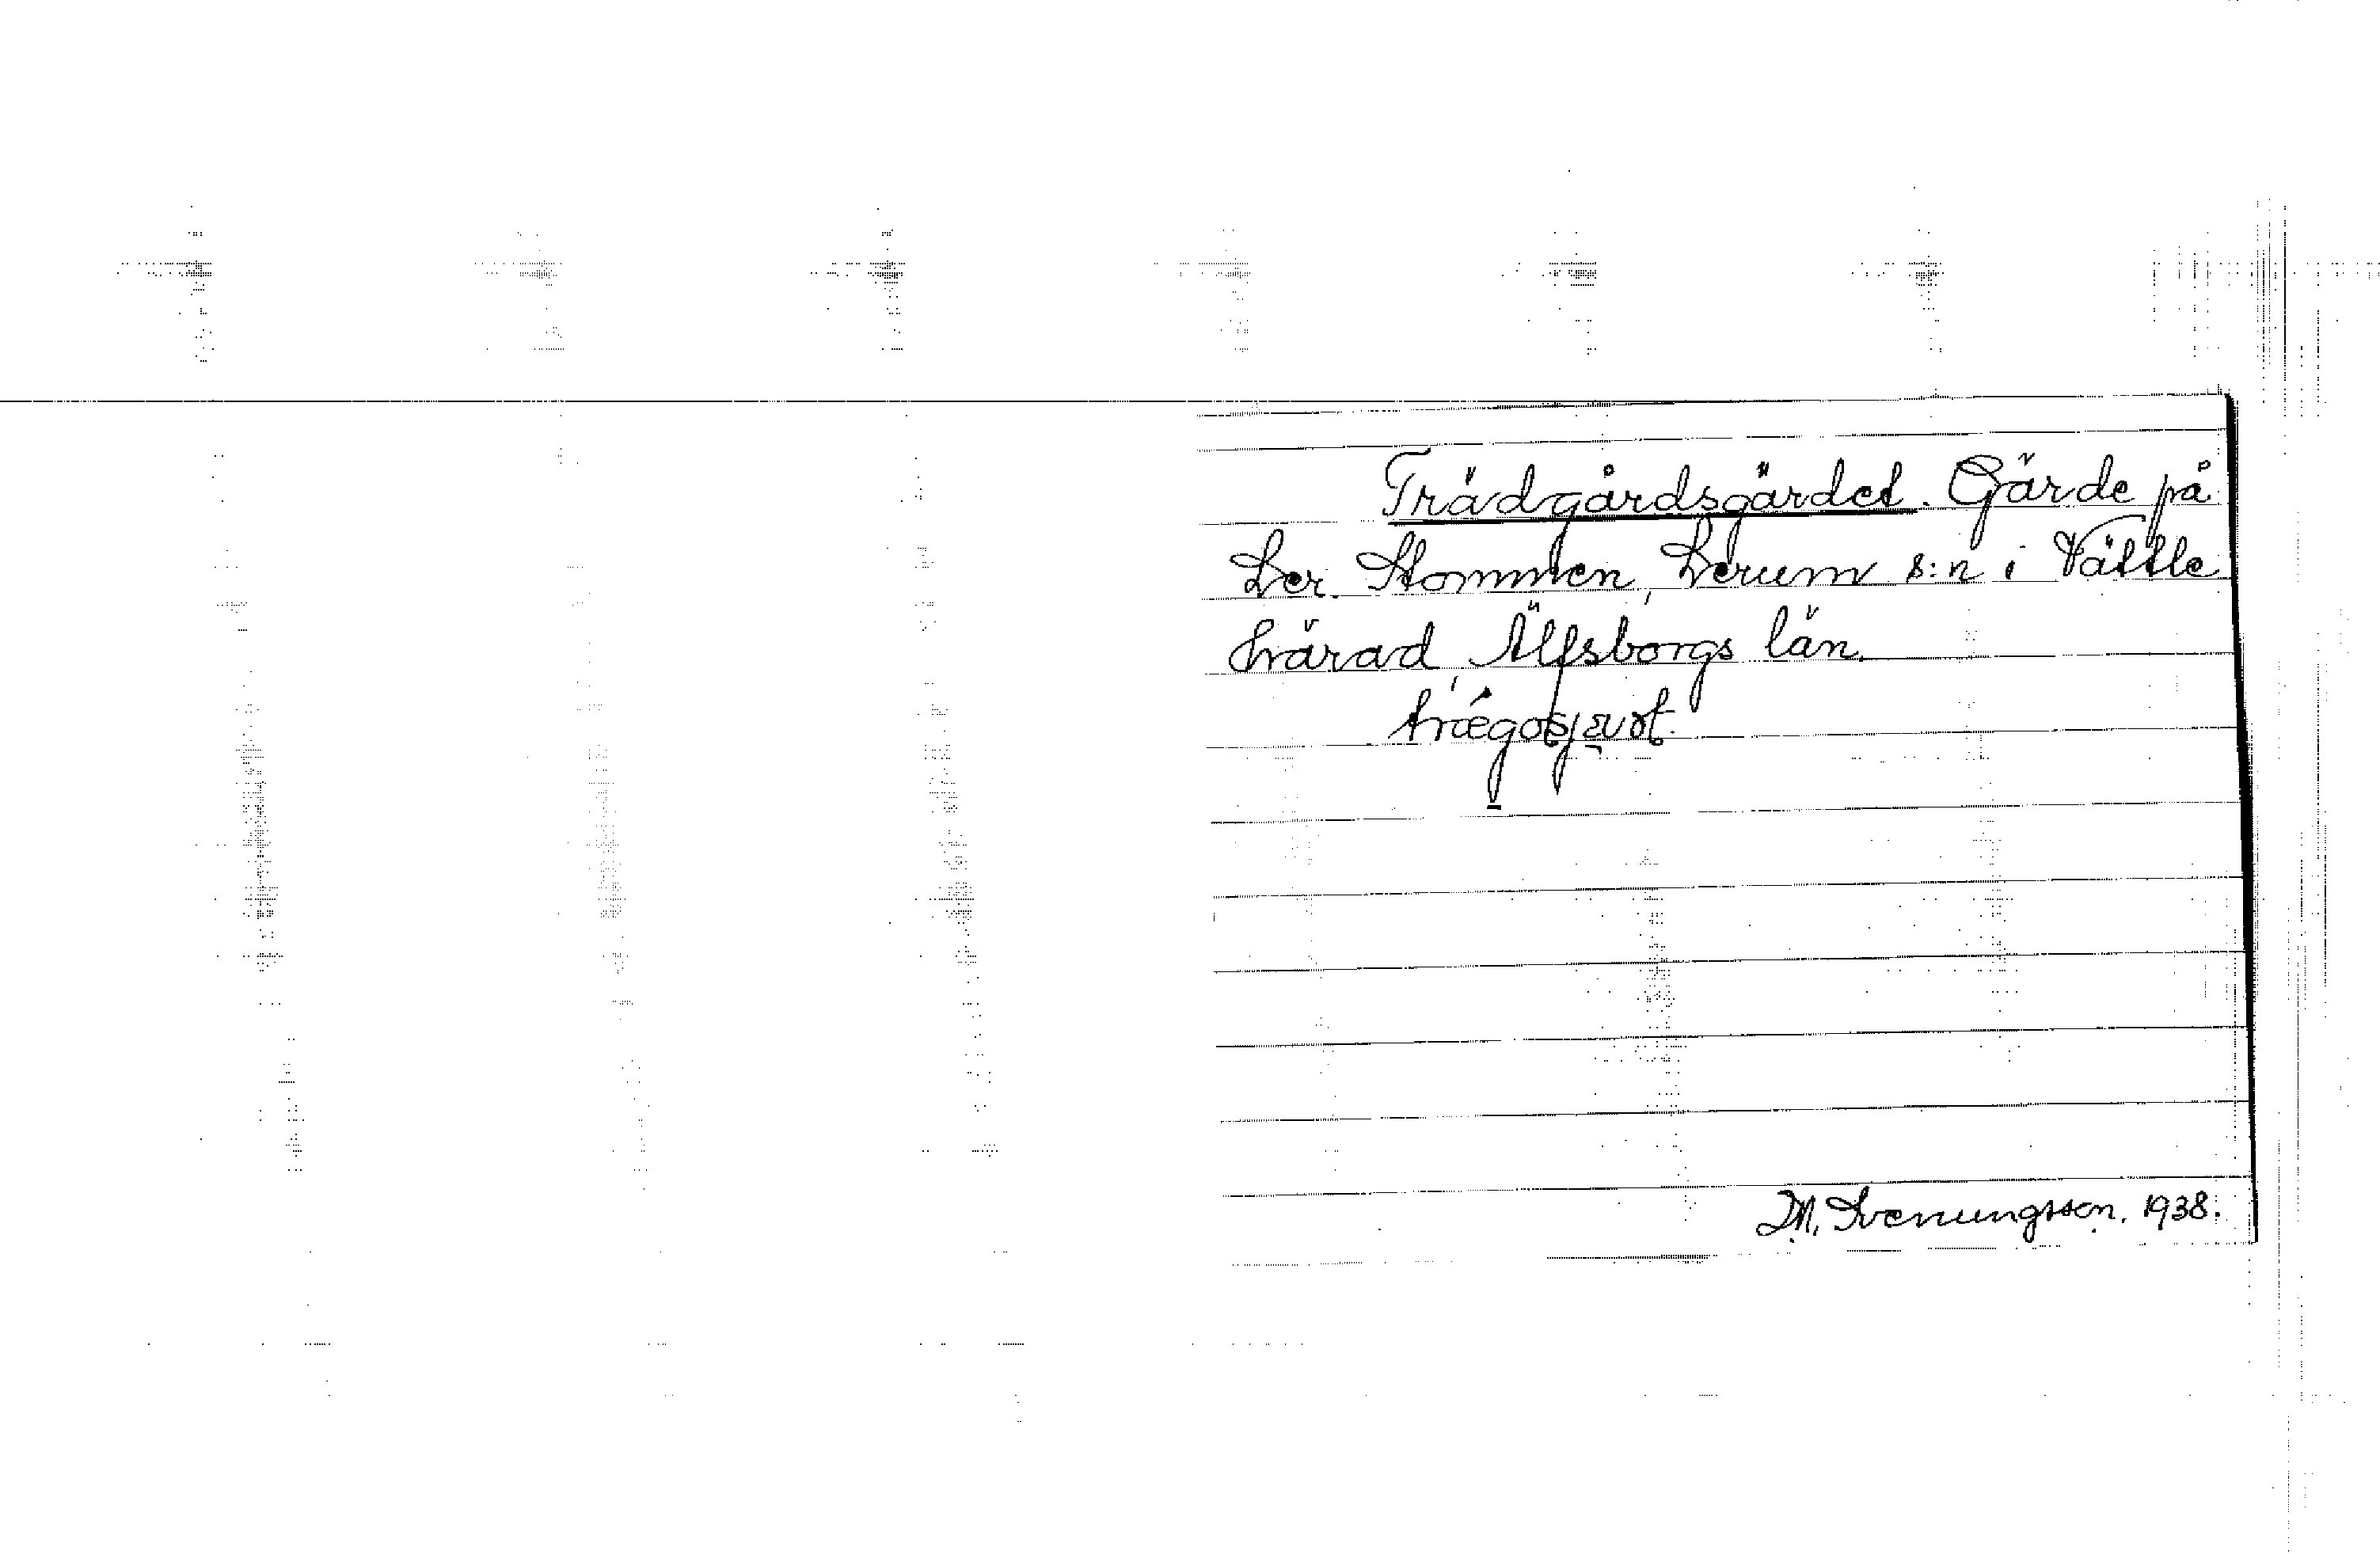 Trädgårdsgärdet. Gärde på
Ler. Stommen, Lerum s:n i Vättle
härad, Älfsborgs län.
M. Svenungsson. 1938.